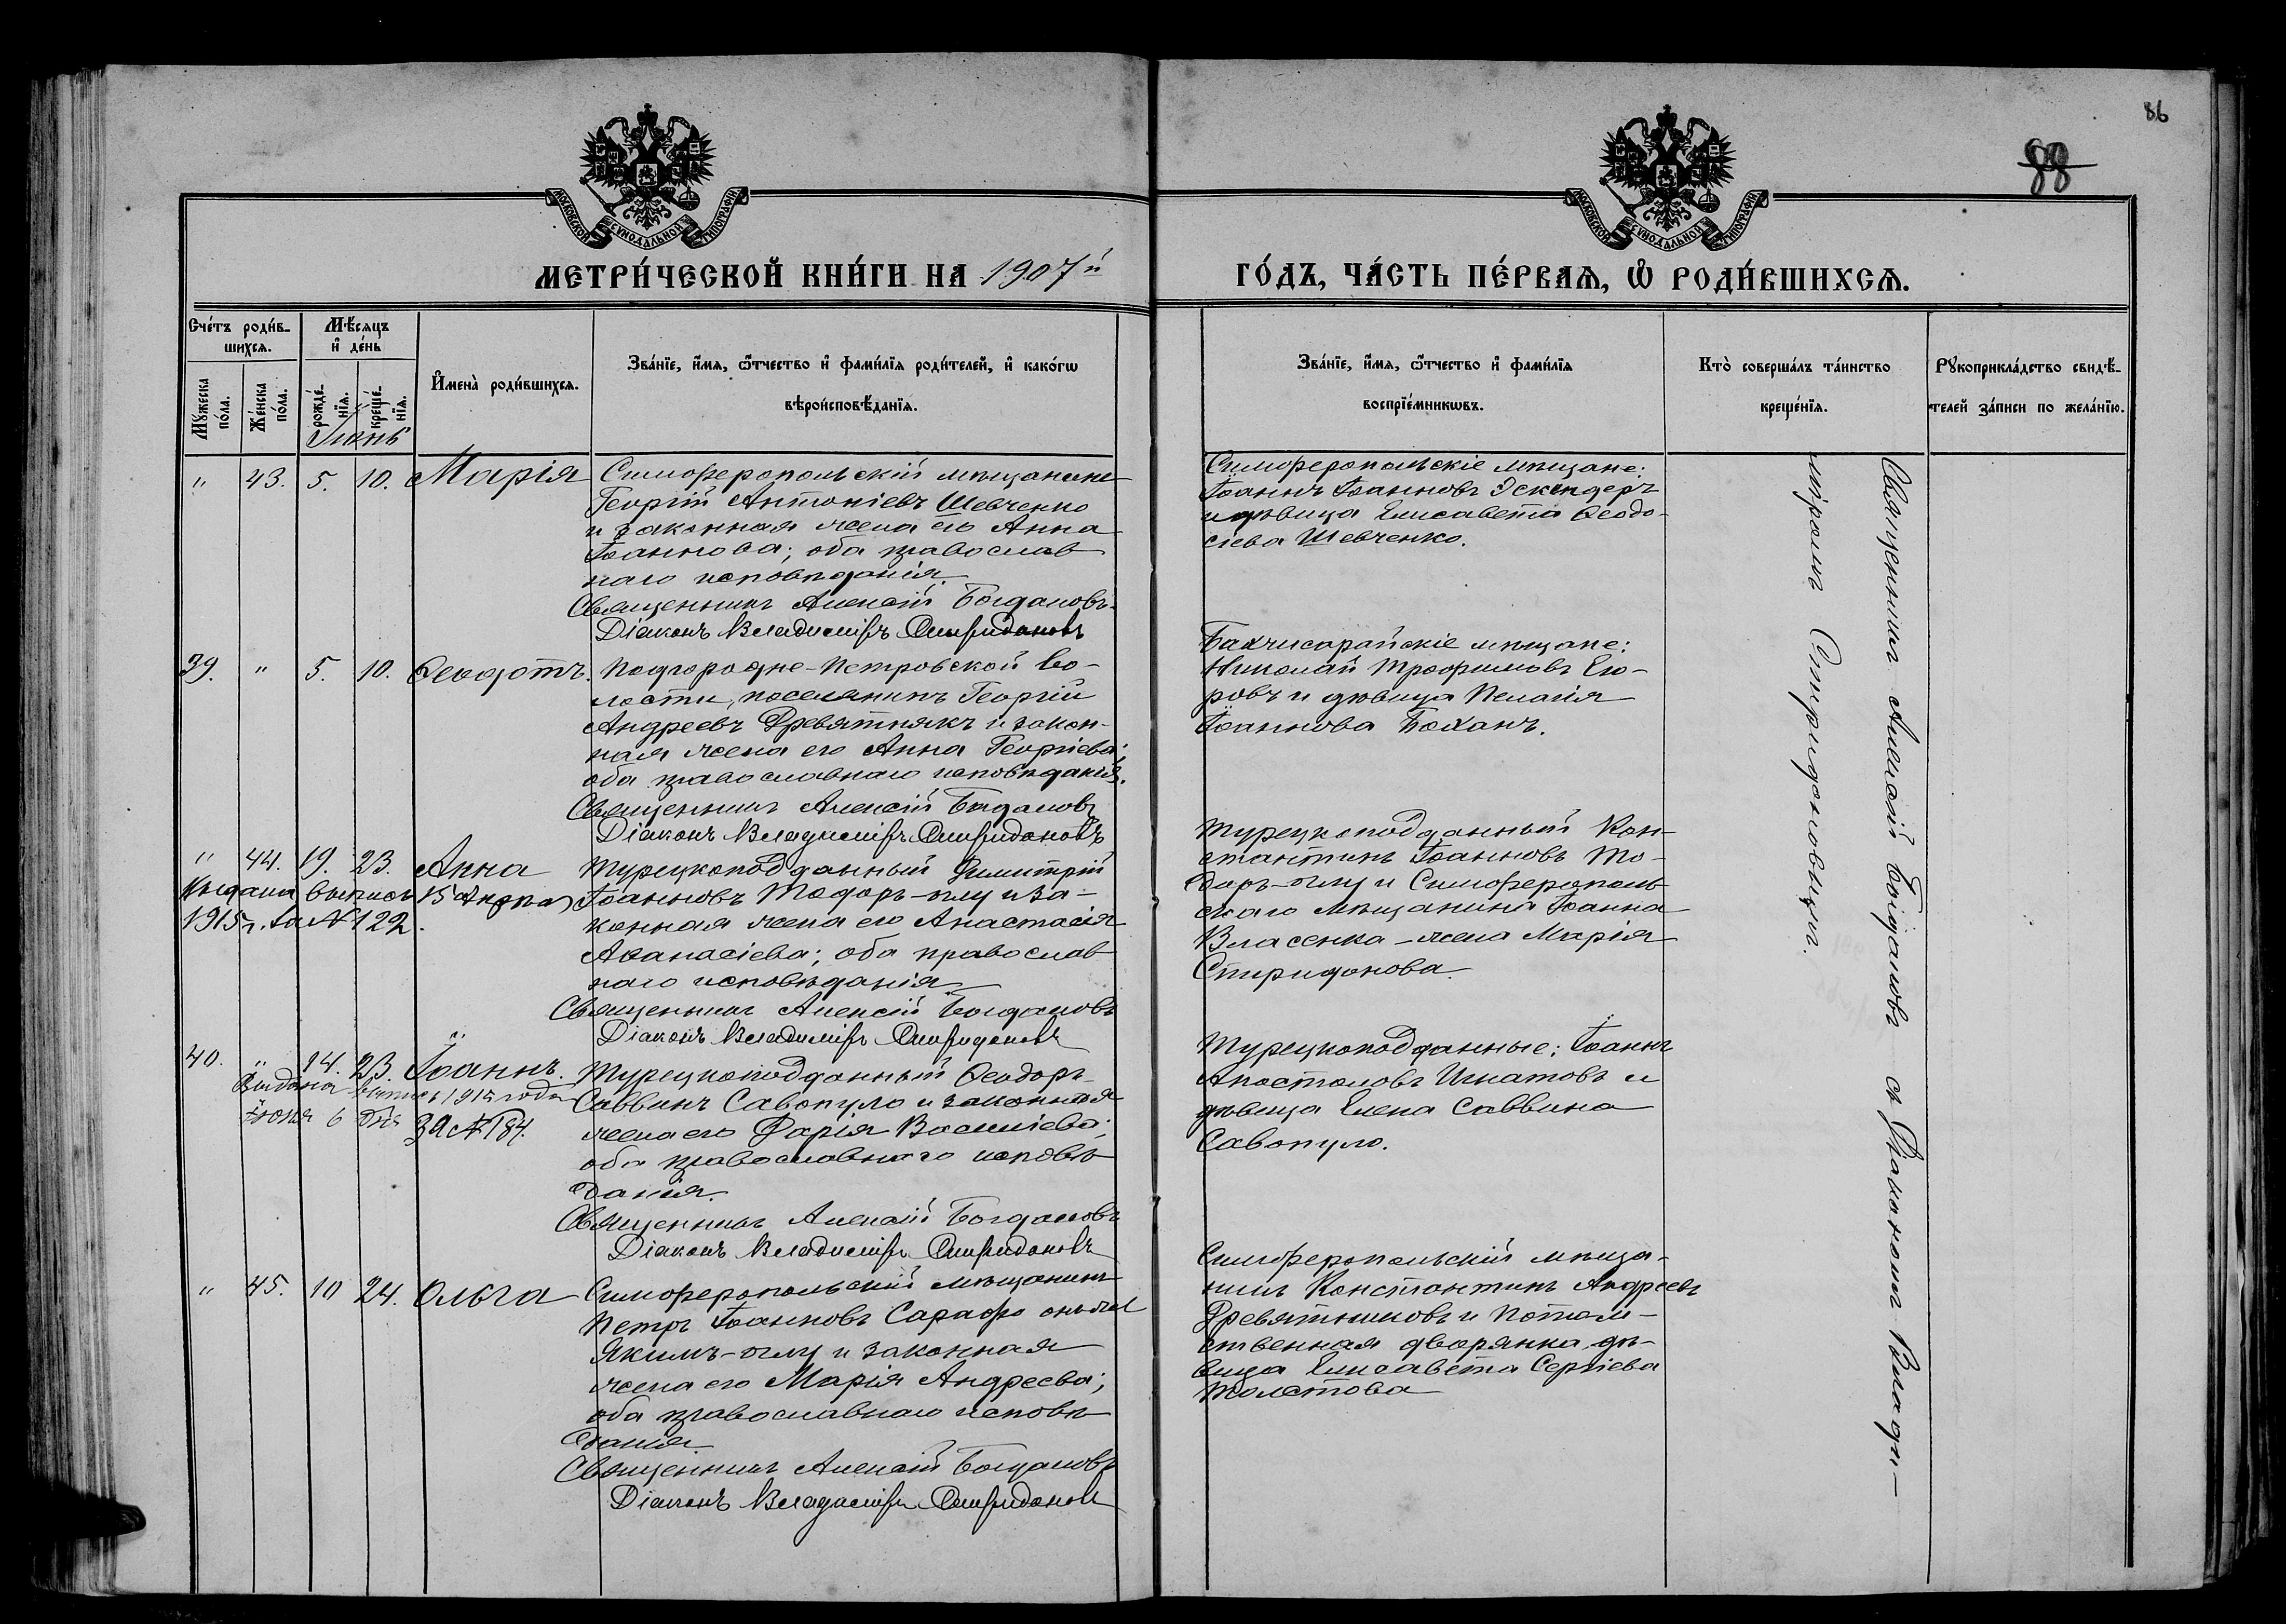 86
88
МОСКОВСКОЙ СѴНОДАЛЬНОЙ ТИПОГРАФІИ
МОСКОВСКОЙ СѴНОДАЛЬНОЙ ТИПОГРАФІИ
МЕТРИ́ЧЕСКОЙ КНИ́ГИ НА 1907й
ГО́ДЪ, ЧА́СТЬ ПЕ́РВАѦ, Ѡ҆ РОДИ́ВШИХСѦ.
Сче́тъ роди́в-
шихсѧ.
Мѣ́сѧцъ
и҆ де́нь
Мꙋ́жеска
по́ла.
Же́нска
по́ла.
рожде́-
нїѧ.
креще́-
нїѧ.
И҆мена̀ роди́вшихсѧ.
Зва́нїе, и҆́мѧ, ѻ҆́тчество и҆ фами́лїѧ роди́телей, и҆ како́гѡ
вѣроисповѣ́данїѧ.
Зва́нїе, и҆́мѧ, ѻ҆́тчество и҆ фами́лїѧ
воспрїе́мникѡвъ.
Кто̀ соверша́лъ та́инство
креще́нїѧ.
Рꙋкоприкла́дство свидѣ́-
телей за́писи по жела́нїю.
Іюнь
" 43. 5. 10. Марія
Симферопольскій мѣщанинъ
Георгій Антоніевъ Шевченко
и законная жена его Анна
Іоаннова; оба православ
наго исповѣданія.
Священникъ Алексій Богдановъ.
Діаконъ Владиміръ Спиридоновъ
Симферопольскіе мѣщане:
Іоаннъ Іоанновъ Эскендеръ
и дѣвица Елисавета Ѳеодо-
сіева Шевченко.
39. " 5. 10. Ѳеодотъ.
Подгородне-Петровской во-
лости, поселянинъ Георгій
Андреевъ Древятнякъ и закон-
ная жена его Анна Георгіева;
оба православнаго исповѣданія.
Священникъ Алексій Богдановъ
Діаконъ Владиміръ Спиридоновъ
Бахчисарайскіе мѣщане:
Николай Трофимовъ Его-
ровъ и дѣвица Пелагія
Іоаннова Боханъ.
" 44. 19. 23. Анна
Выдана выпись 15 Апрѣля
1915 г. за № 122.
Турецкоподданный Димитрій
Іоанновъ Тодоръ-оглу и за-
конная жена его Анастасія
Аѳанасіева; оба православ
наго исповѣданія
Священникъ Алексій Богдановъ
Діаконъ Владиміръ Спиридоновъ
Турецкоподданный Кон-
стантинъ Іоанновъ То-
доръ-оглу и Симферополь-
скаго мѣщанина Іоанна
Власенка - жена Марія
Спиридонова.
40. " 14. 23. Іоаннъ.
Выдана выпись 1915 года
Іюня 6 дня за № 184.
Турецкоподданный Ѳеодоръ
Саввинъ Савопуло и законная
жена его Дарія Василіева;
оба православнаго исповѣ
данія.
Священникъ Алексій Богдановъ
Діаконъ Владиміръ Спиридоновъ
Турецкоподданные: Іоаннъ
Апостоловъ Игнатовъ и
дѣвица Елена Саввина
Савопуло.
" 45. 10 24. Ольга
Симферопольскій мѣщанинъ
Петръ Іоанновъ Сарафъ онъ-же
Якимъ-оглу и законная
жена его Марія Андреева;
оба православнаго исповѣ
данія.
Священникъ Алексій Богдановъ
Діаконъ Владиміръ Спиридоновъ
Симферопольскій мѣща-
нинъ Константинъ Андреевъ
Древятниковъ и потом-
ственная дворянка дѣ-
вица Елисавета Сергіева
Толстова
Священникъ Алексій Богдановъ съ Діакономъ Влади-
міромъ Спиридоновымъ.